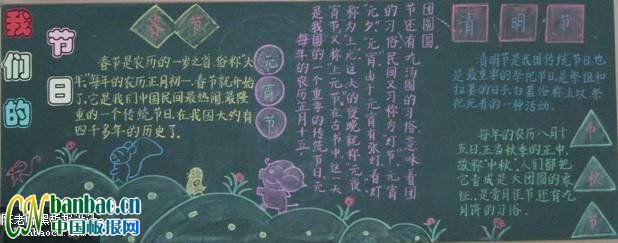 我们的
节日
春节
春节是农历的一岁之首,俗称“大
年”。每年的农历正月初一,春节就开始
了。它是我们中国民间最热闹、最隆
重的一个传统节日。在我国大约有
四千多年的历史了。
元宵节
每年的农历正月十五,
是我国的一个重要的传统节日。元
宵节又称上元节。在古书中,这一天
称为上元,这天的夜晚就称元夜、
元夕。元宵由于元宵有张灯、看灯
的习俗,民间又习称为灯节。元宵
节还有吃汤圆的习俗,意味着团
团圆圆。
清明节
清明节是我国传统节日,也
是最重要的祭祀节日,是祭祖和
扫墓的日子。扫墓俗称上坟,祭
祀死者的一种活动。
中秋节
每年的农历八月十
五日,正当秋季的正中,
故称“中秋”。人们都把
它看成是大团圆的象
征。是赏月佳节还有吃
月饼的习俗。
CN banbao.cn
中国板报网